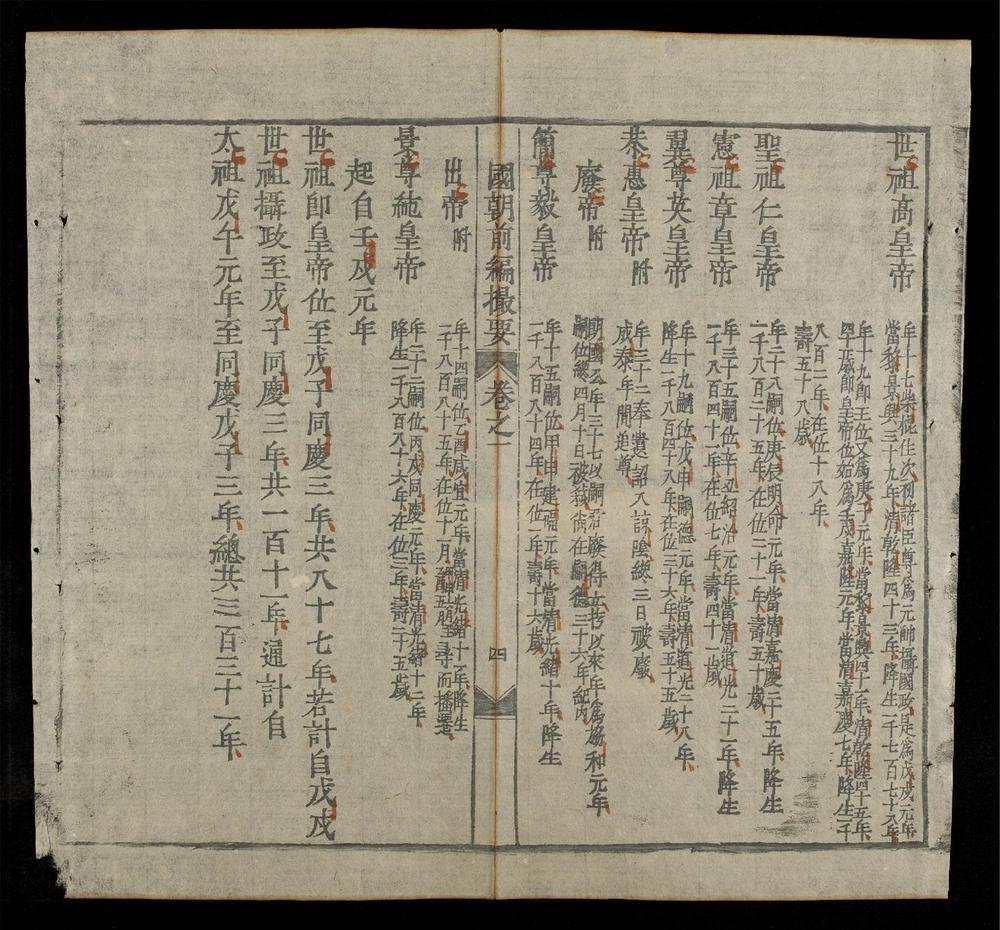 世祖高皇帝
年十七柴棍住次初諸臣尊爲元帥攝國政是爲戊戌元年
當黎景興三十九年清乾隆四十三年降生一千七百七十八年
年十九即王位又爲庚子元年當黎景興四十一年清乾隆四十五年
四十一歲即皇帝位始爲壬戌嘉隆元年當清嘉慶七年降生一千
八百二年在位十八年
壽五十八歲
聖祖仁皇帝
年三十八嗣位庚辰明命元年當清嘉慶二十五年降生
一千八百二十五年在位二十一年壽五十歲
憲祖章皇帝
年三十五嗣位辛丑紹治元年當清道光二十一年降生
一千八百四十一年在位七年壽四十一歲
翼尊英皇帝
年十九嗣位戊申嗣德元年當清道光二十八年
降生一千八百四十八年在位三十六年壽五十五歲
恭惠皇帝附
年三十二奉遺詔入諒陰總三日被廢
成泰年間追尊
廢帝附
朗國公年三十七以嗣君廢得立擬以來年爲協和元年
嗣位總四月十日被弒偵在嗣德三十六年紀內
簡尊毅皇帝
年十五嗣位甲申建福元年當清光緒十年降生
一千八百八十四年在位一年壽十六歲
國朝前編撮要
卷之一
四
出帝附
年十四嗣位乙酉咸宜元年當清光緒十一年降生
一千八百八十五年在位十一月
景尊純皇帝
年二十二嗣位丙戌同慶元年當清光緒十二年
降生一千八百八十六年在位三年壽二十五歲
起自壬戌元年
世祖即皇帝位至戊子同慶三年共八十七年若計自戊戌
世祖攝政至戊子同慶三年共一百十一年通計自
太祖戊午元年至同慶戊子三年總共三百三十一年